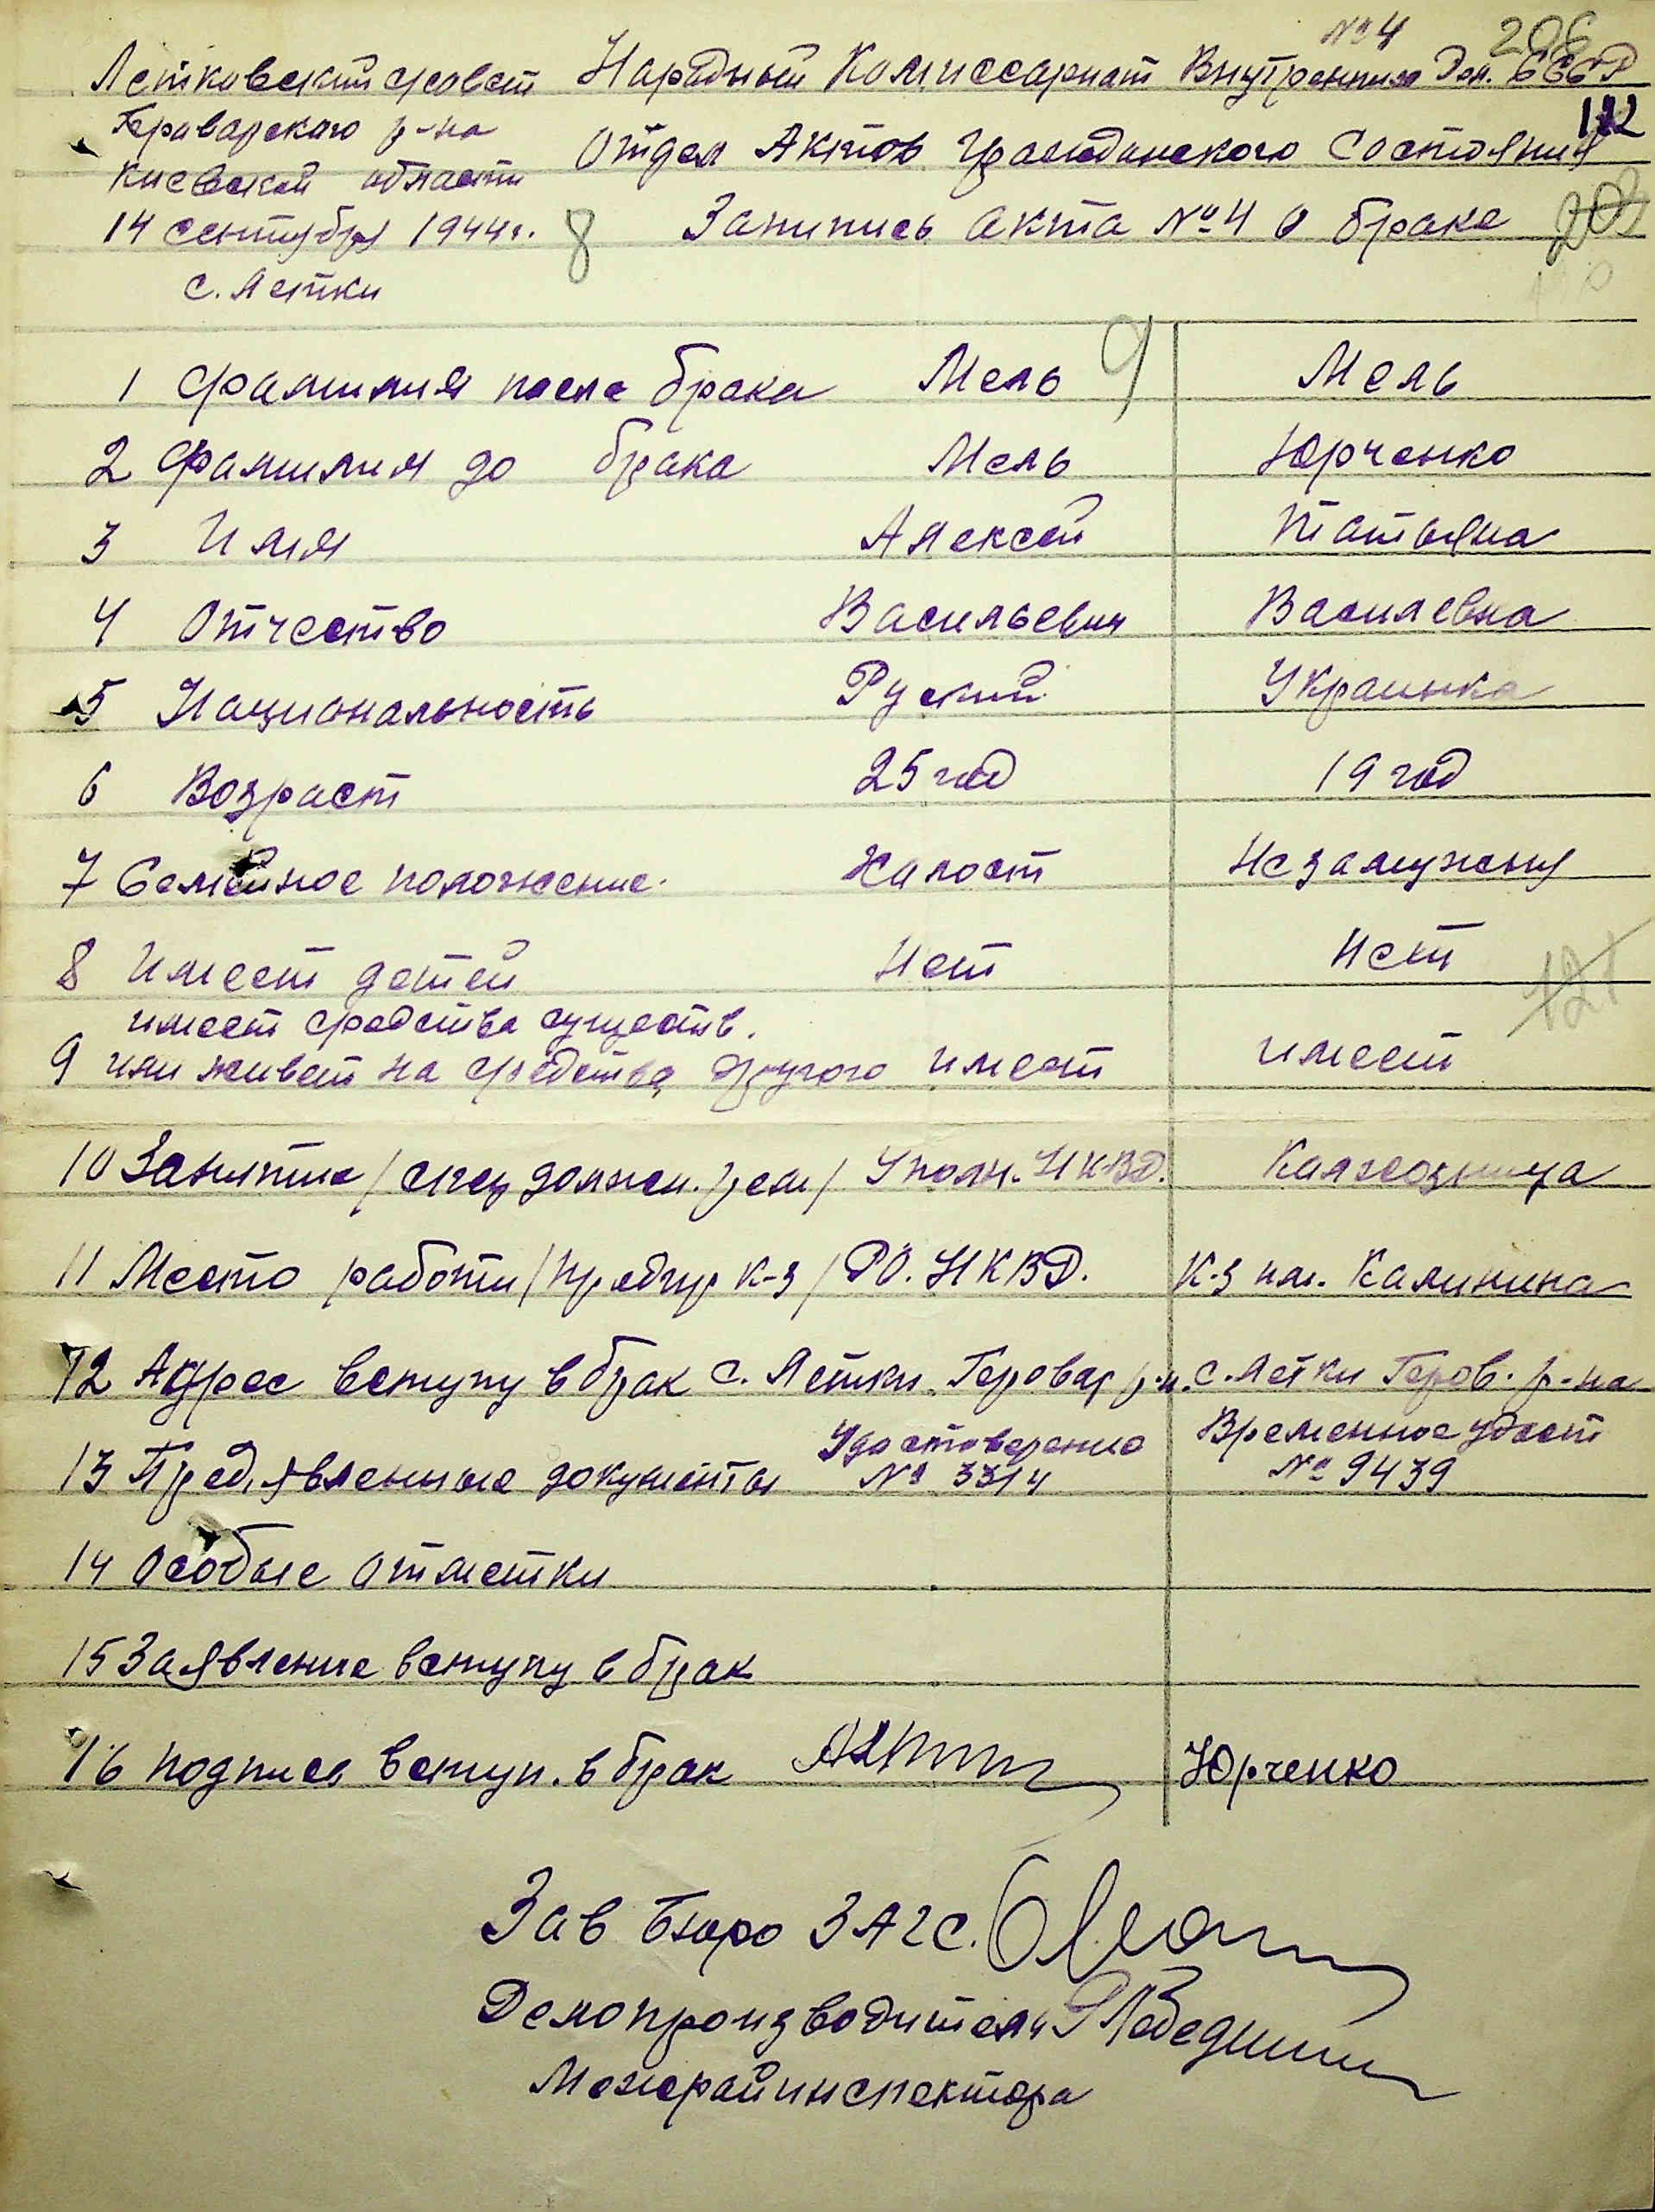 № 4 206
Летковский с/совет Народный Комиссариат Внутренних Дел. СССР
122
Броварского р-на
Отдел Актов Гражданского Состояния
Киевской области
14 сентября 1944 г. 8 Запипись акта № 4 о браке 203
с. Летки
1 Фамилия после брака Мель 9 Мель
2 Фамилия до брака Мель Юрченко
3 Имя Алексей Татьяна
4 Отчество Васильевич Василевна
5 Национальность Руский Украинка
6 Возраст 25 год 19 год
7 Семейное положение. Халост Незамужняя
8 Имеет детей Нет Нет
121
имеет средства существ.
9 или живет на средства другого имеет имеет
10 Занятие / спец должен. рем / Уполн. НКВД. Калхозница
11 Место работы / Предпр к-з / РО. НКВД. К-з им. Калинина
12 Адрес вступ в брак с. Летки Бровар р-н. с. Летки Бров. р-на
Удостоверение Временное удост
13 Предявленные документы № 3314 № 9439
14 Особые отметки
15 Заявление вступ в брак
16 подписи вступ. в брак Юрченко
Зав Бюро ЗАГС.
Делопроизводитель
Межрайинспектора